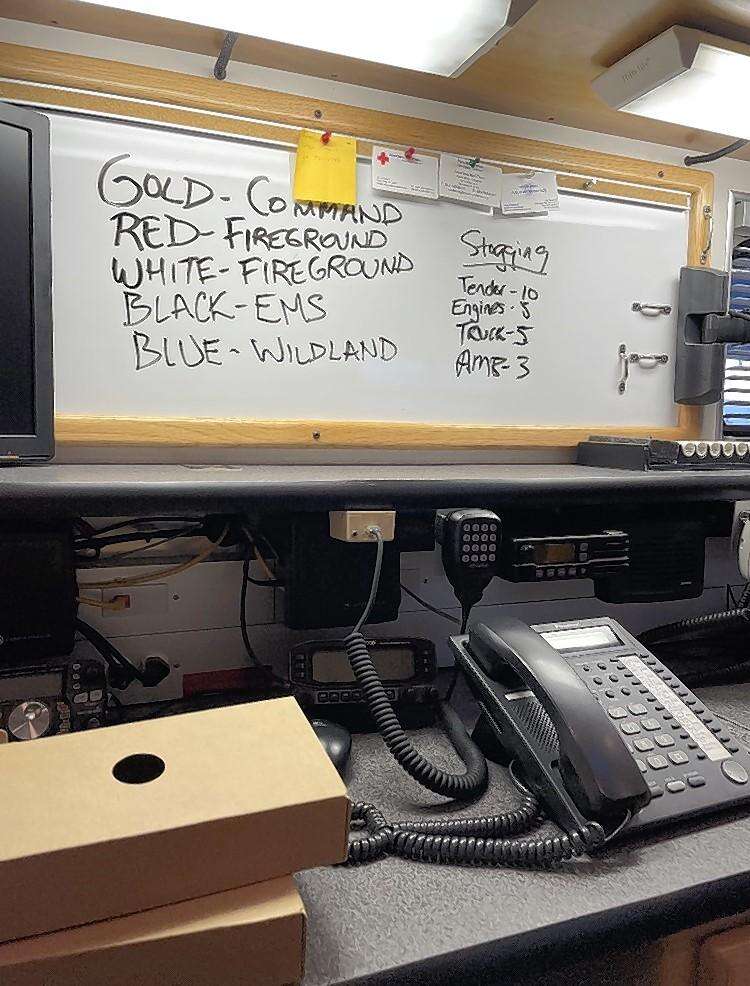 GOLD - COMMAND
RED - FIREGROUND
WHITE - FIREGROUND
BLACK - EMS
BLUE - WILDLAND
Staging
Tender - 10
Engines - 5
TRUCK - 5
AMB - 3